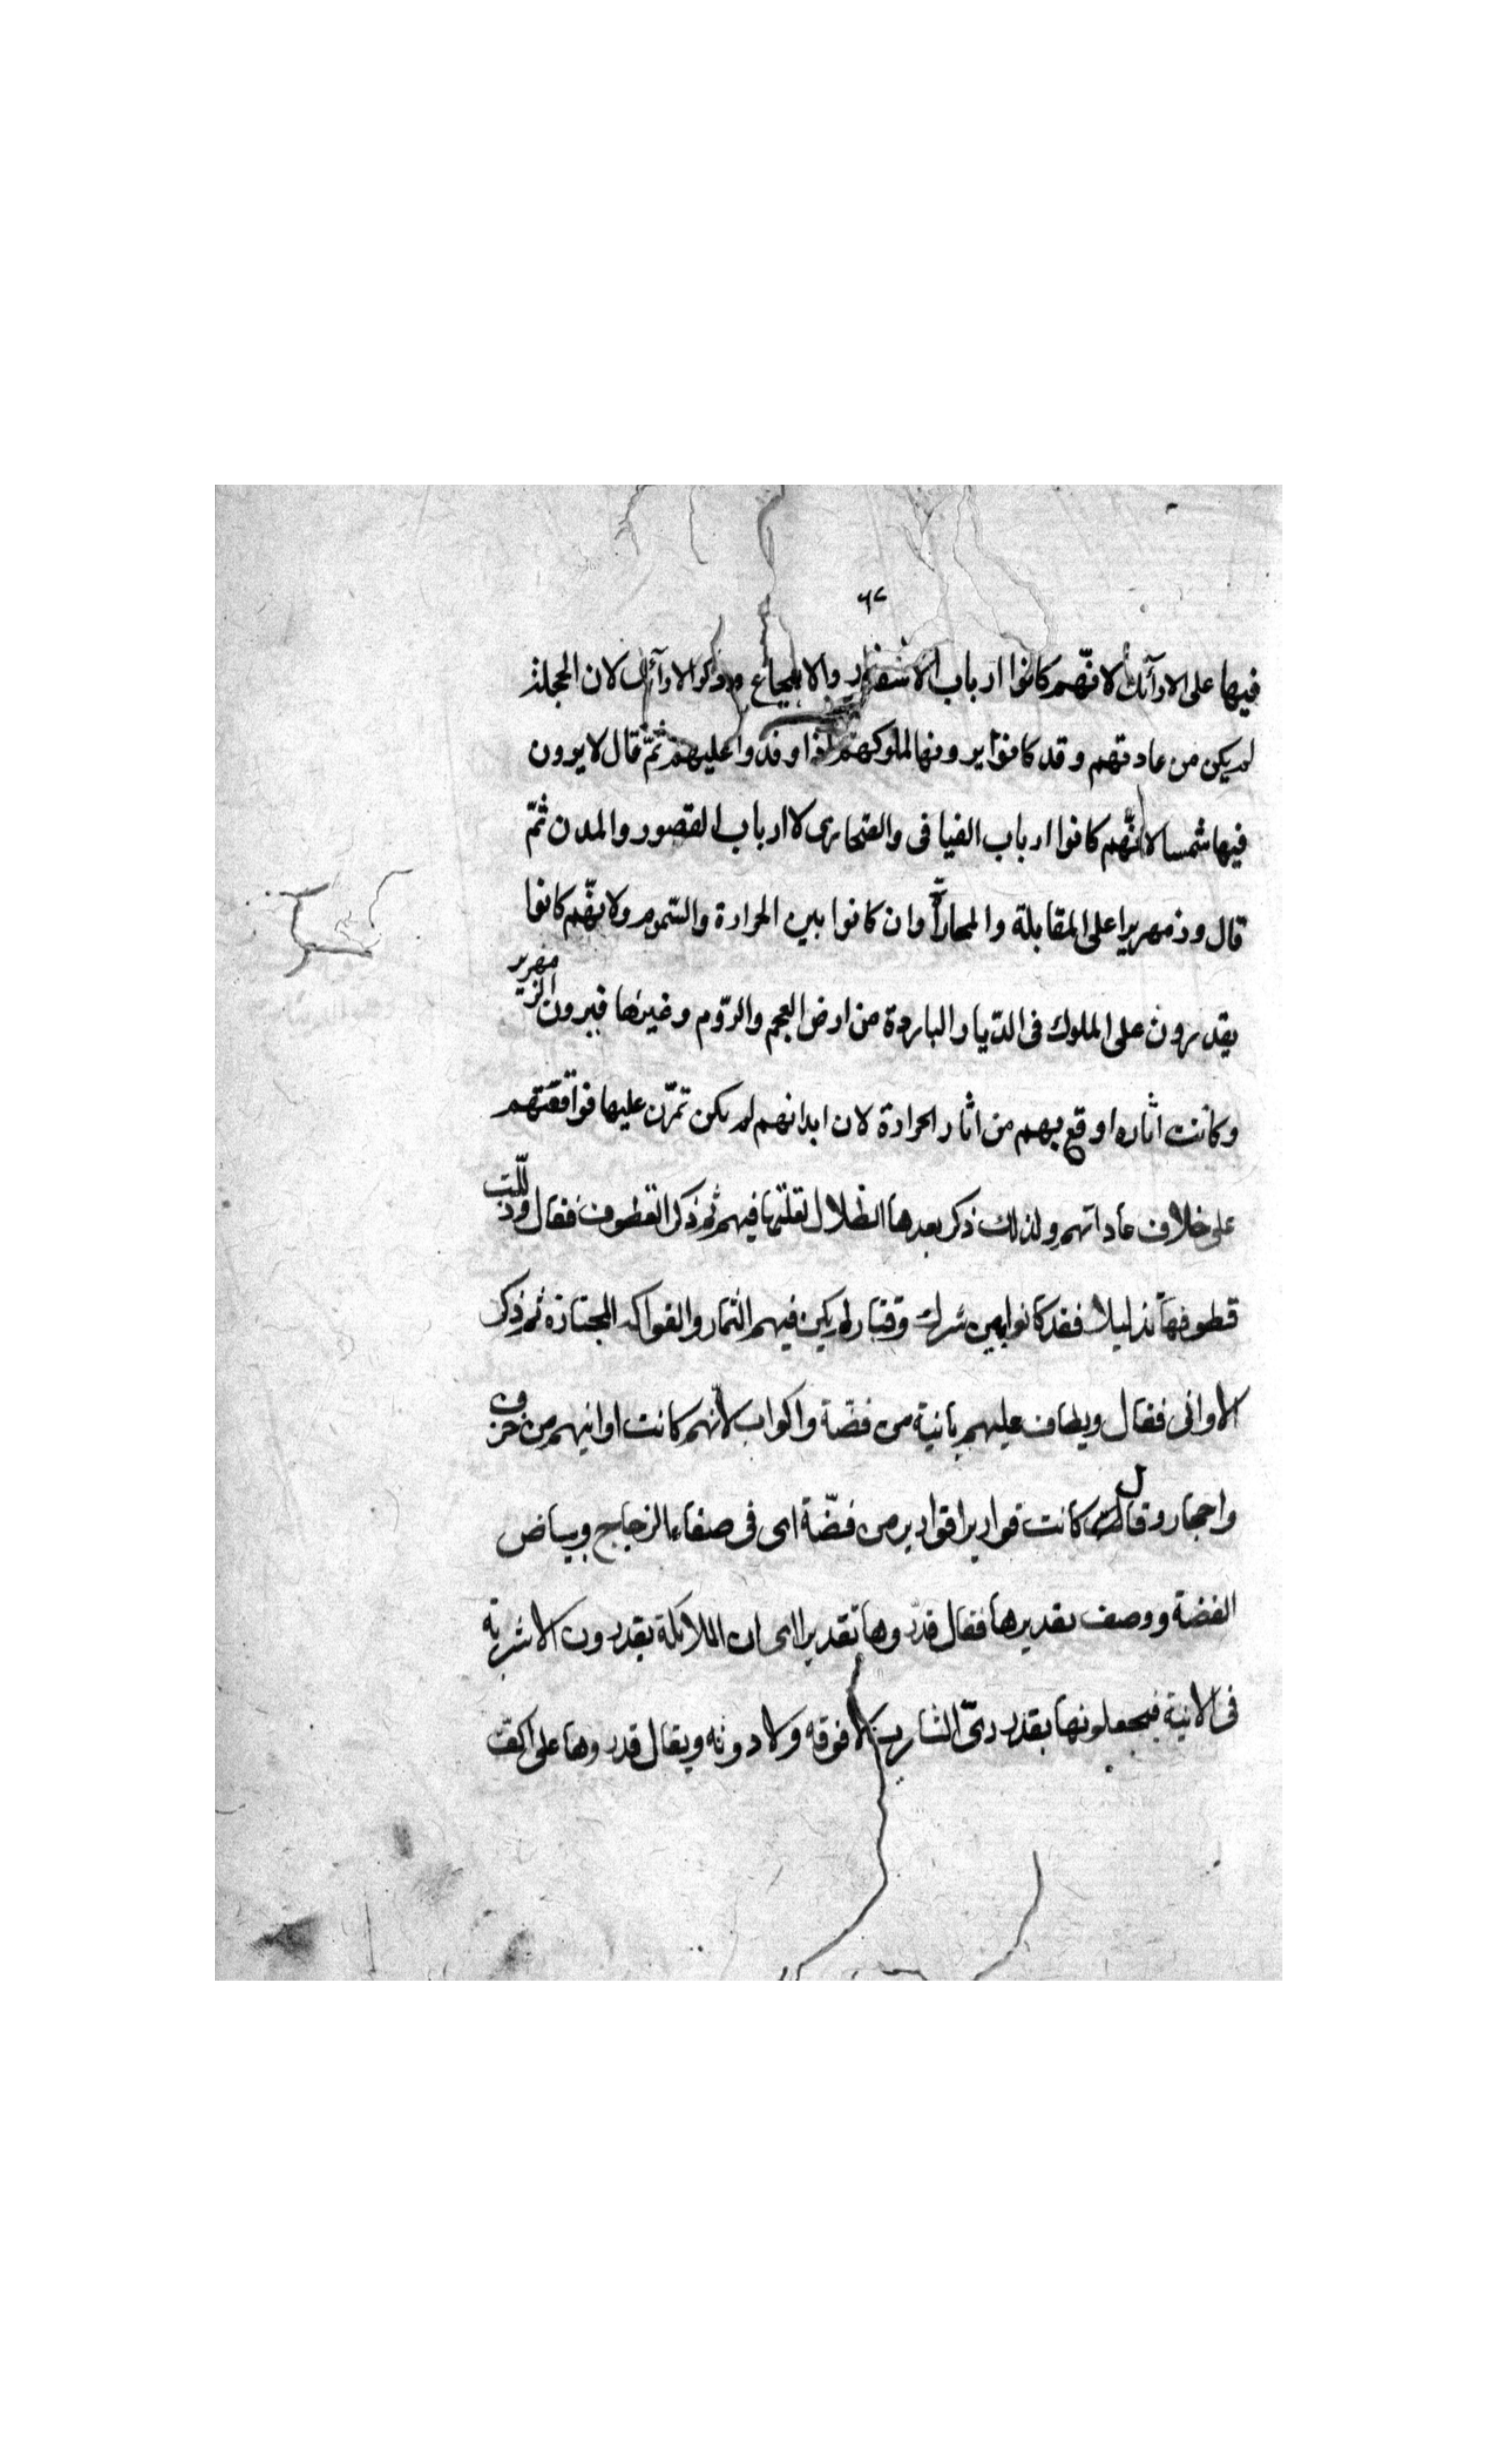 ٦٢
فيها على الارآئك لانّهم كانوا ارباب الاسفار والانتجاع وذكر الارآئك لان الحجلة
لم يكن من عادتهم وقد كانوا يرونها لملوكهم اذا وفدوا عليهم ثمّ قال لا يرون
فيها شمسا لانّهم كانوا ارباب الفيافى والصّحارى لا ارباب القصور والمدن ثمّ
قال وزمهريرا على المقابلة والمحاذاة وان كانوا بين الحرارة والسّموم ولانّهم كانوا
يقدرون على الملوك فى الدّيار الباردة من ارض العجم والرّوم وغيرها فيرون الزّمهرير
وكانت اثاره اوقع بهم من اثار الحرارة لان ابدانهم لم يكن تمرّن عليها فوافقتهم
على خلاف عاداتهم ولذلك ذكر بعدها الظلال لقلّتها فيهم ثم ذكر القطوف فقال وذلّلت
قطوفها تذليلا فقد كانوا بين شرك وقتاد لم يكن فيهم الثمار والفواكه المجتازة ثم ذكر
الاوانى فقال ويطاف عليهم بانية من فضّة واكواب لانّهم كانت اوانيهم من خزف
واحجار وقال كانت قواريرا قوارير من فضّة اى فى صفاء الزجاج وبياض
الفضة ووصف تقديرها فقال قدّروها تقديرا اى ان الملائكة يقدرون الاشربة
فى الانية فيجعلونها بقدر رىّ الشارب لا فوقه ولا دونه ويقال قدروها على اكفّ